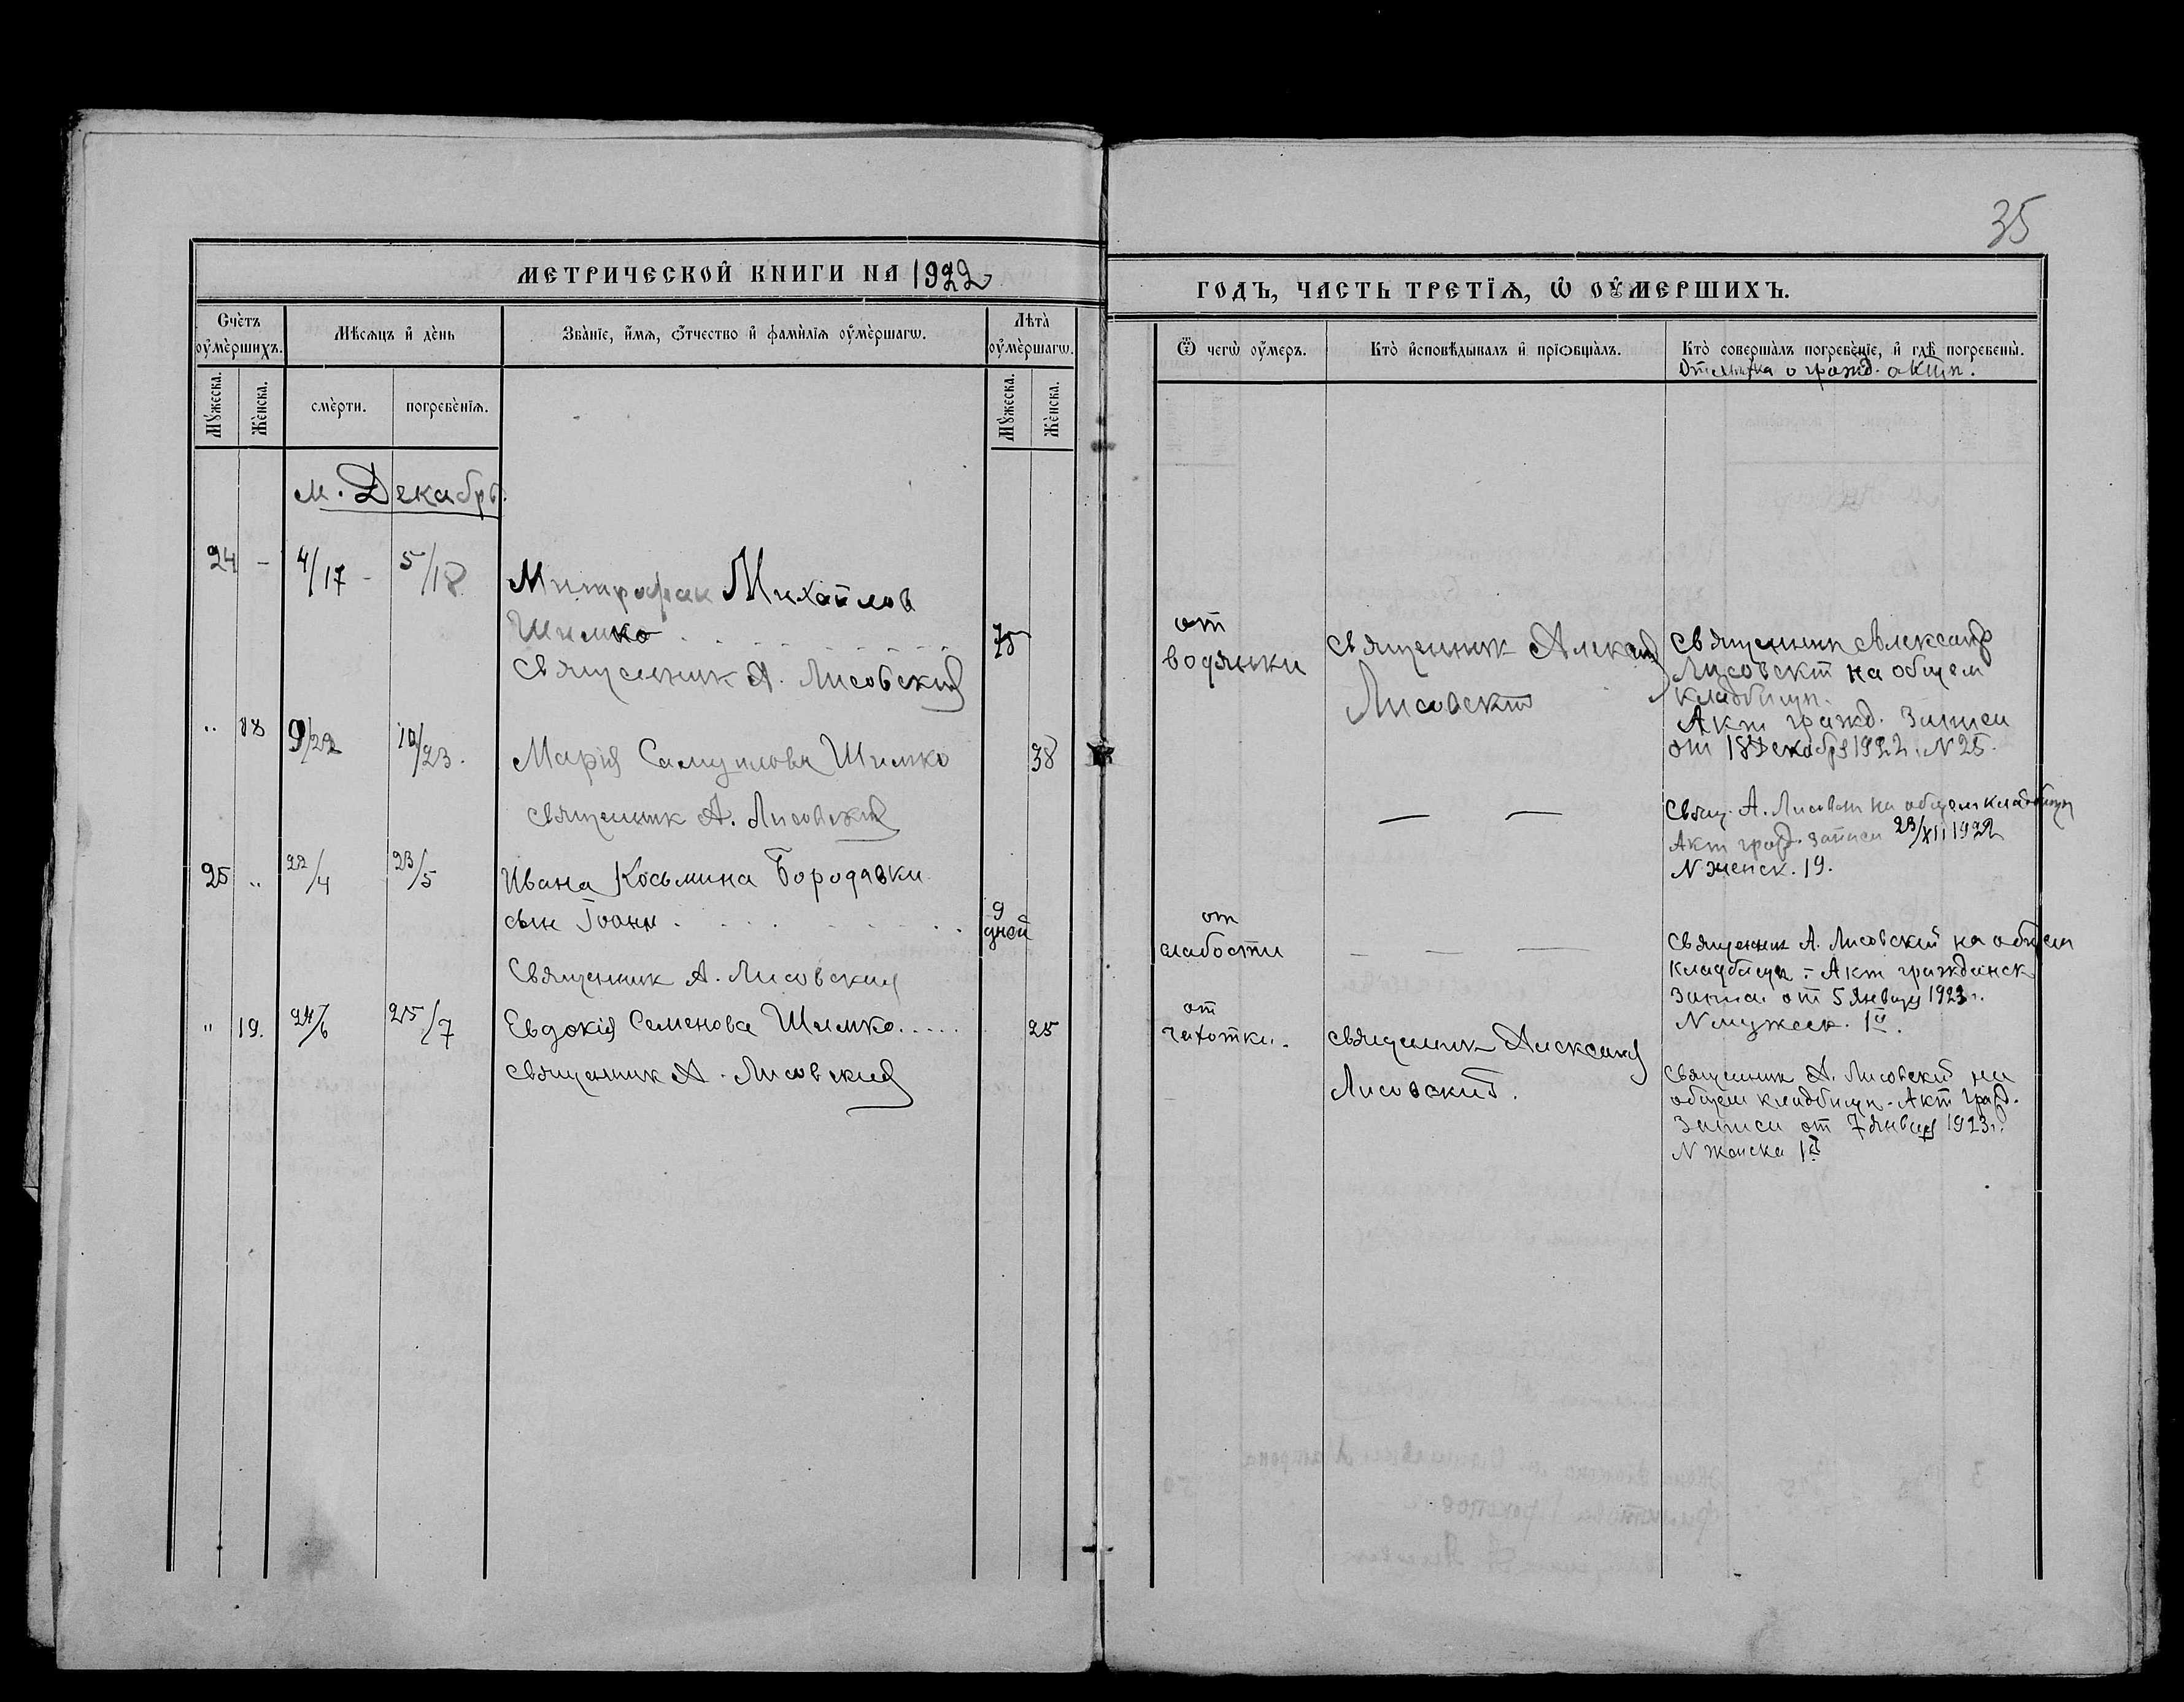 35
МЕТРИЧЕСКОЙ КНИГИ НА 1922
ГОДЪ, ЧАСТЬ ТРЕТІѦ, Ѡ ОУМЕРШИХЪ.
Счетъ оумершихъ.
Мѣсѧцъ и день
Званіе, имѧ, отчество и фамиліѧ оумершагѡ.
Лѣта оумершагѡ.
Мужеска.
Женска.
смерти.
погребеніѧ.
Мужеска.
Женска.
Ѿ чегѡ оумеръ.
Кто исповѣдывалъ и пріобщалъ.
Кто совершалъ погребеніе, и гдѣ погребены.
Отметка о гражд. акти.
м. Декабрь.
24 - 4/17 - 5/18
Митрофан Михайлов
Шимко 75
Священник А. Лисовский
от
водянки
Священник Александр
Лисовский
Священник Александр
Лисовский на общем
кладбищи.
Акт гражд. записи
от 18 декабря 1922 г. N 25.
" 18 9/22 10/23.
Марія Самуилова Шимко 38
Священник А. Лисовский
— —
Свящ. А. Лисовский на общем кладбищи
Акт гражд. записи 23/XII 1922
N женск. 19.
25 " 22/4 23/5
Ивана Косьмина Бородавки
сын Іоанн 9
дней
Священник А. Лисовский
от
слабости
— — —
Священник А. Лисовский на общем
кладбищи - Акт гражданск
записи от 5 января 1923 г.
N мужеск. 1й.
" 19. 24/6 25/7
Евдокія Семенова Шимко..... 25
Священник А. Лисовский
от
чахотки.
Священник Александр
Лисовский.
Священник А. Лисовский на
общем кладбищи - Акт гражд.
записи от 7 января 1923 г.
N женска 1й